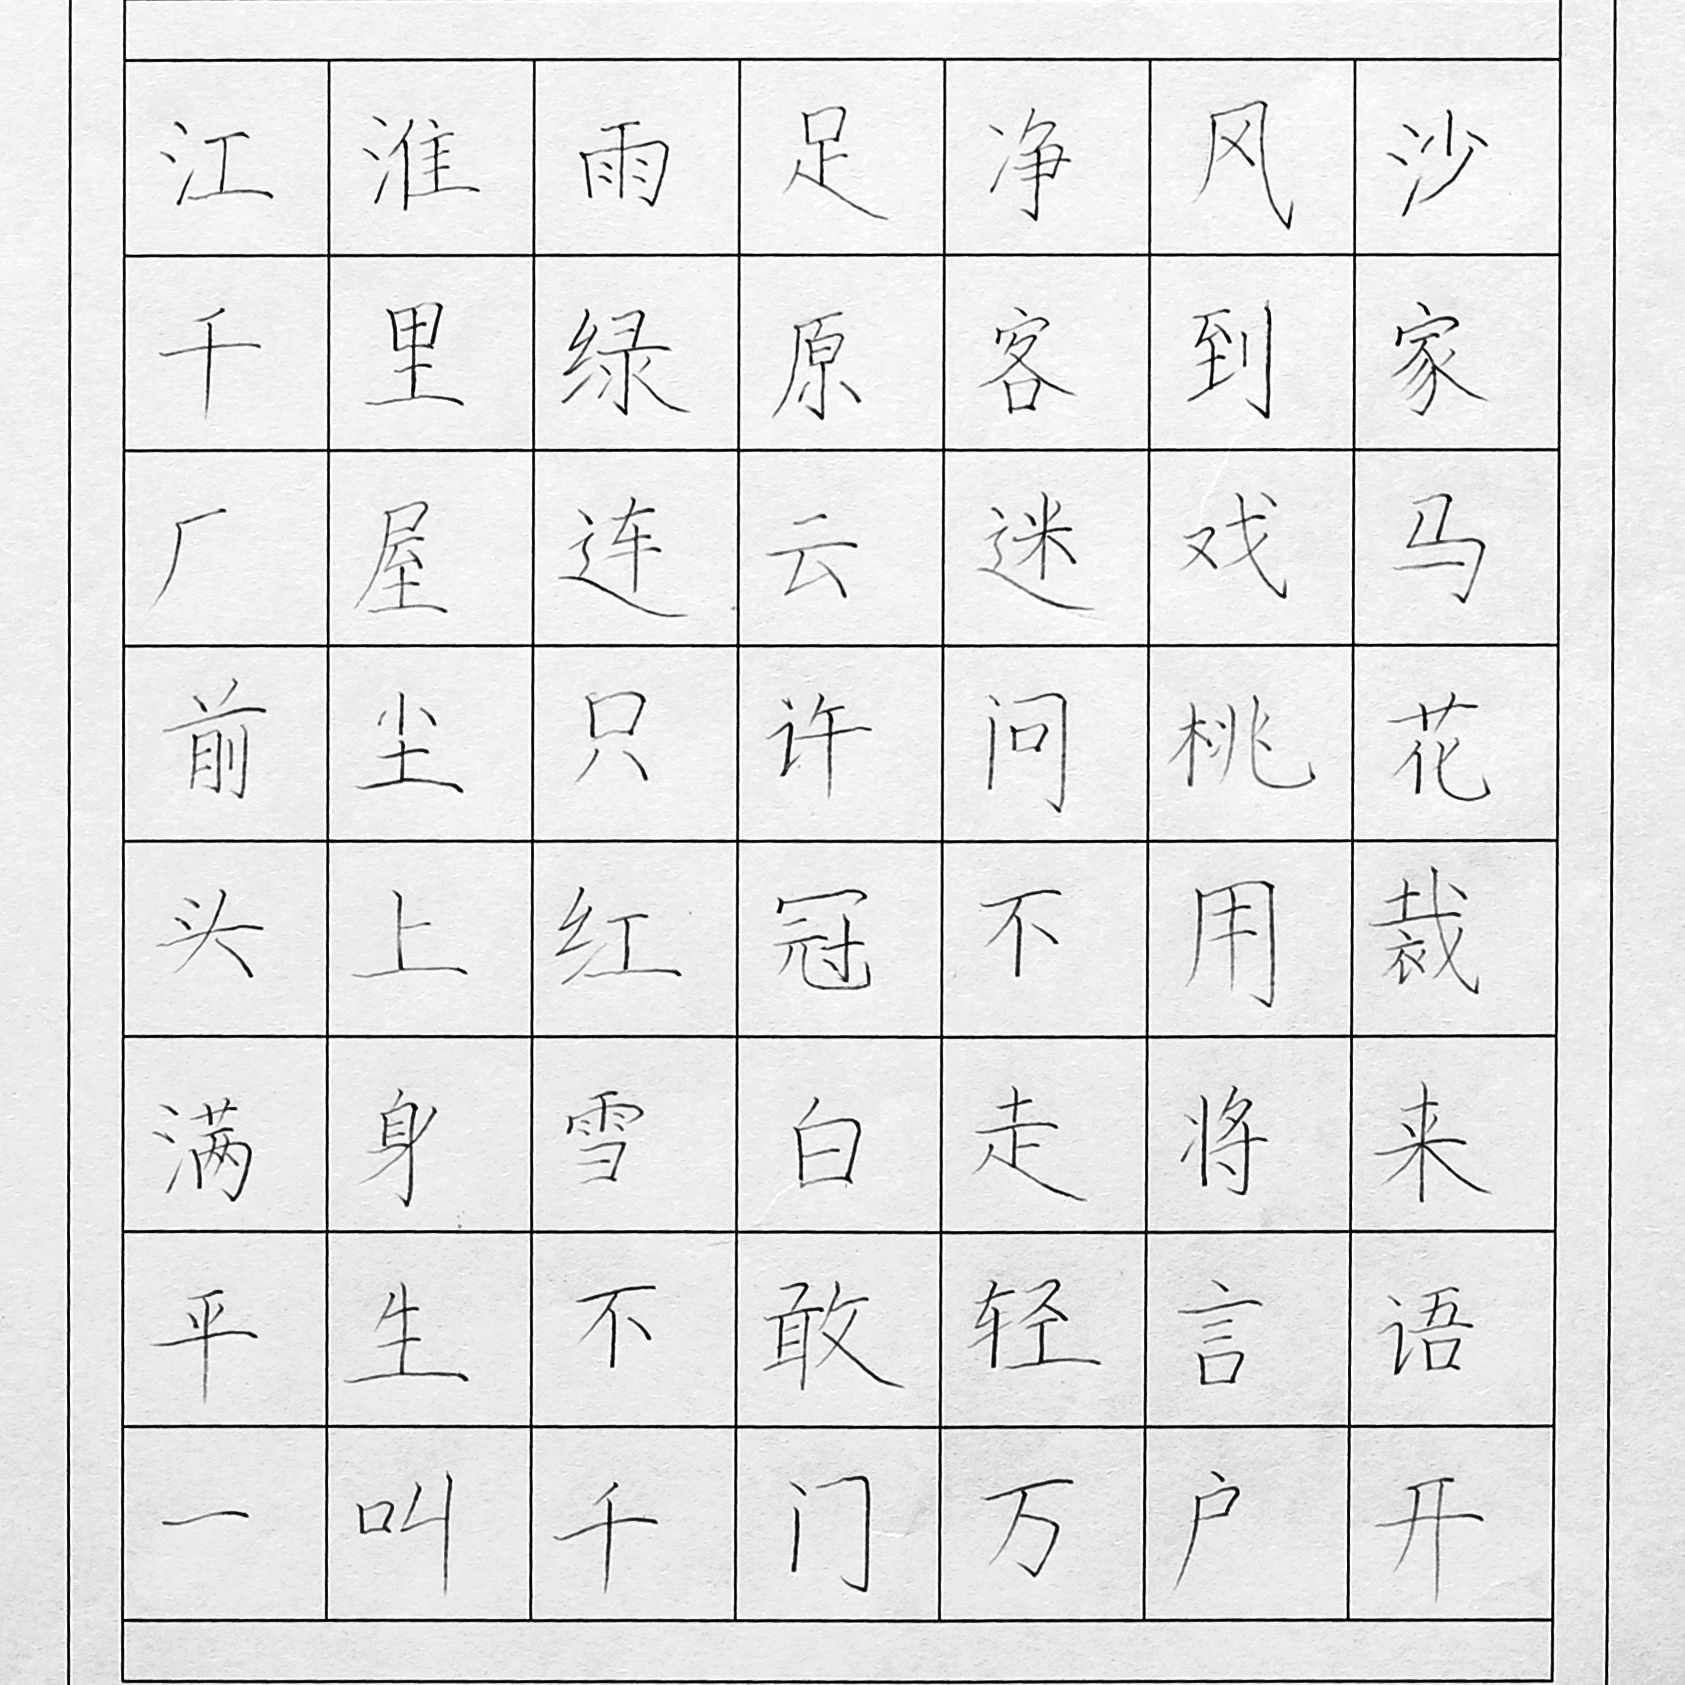 江淮雨足净风沙
千里绿原客到家
厂屋连云迷戏马
前尘只许问桃花
头上红冠不用裁
满身雪白走将来
平生不敢轻言语
一叫千门万户开